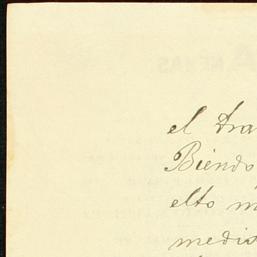 el Dra
Biendo
elto m
medis